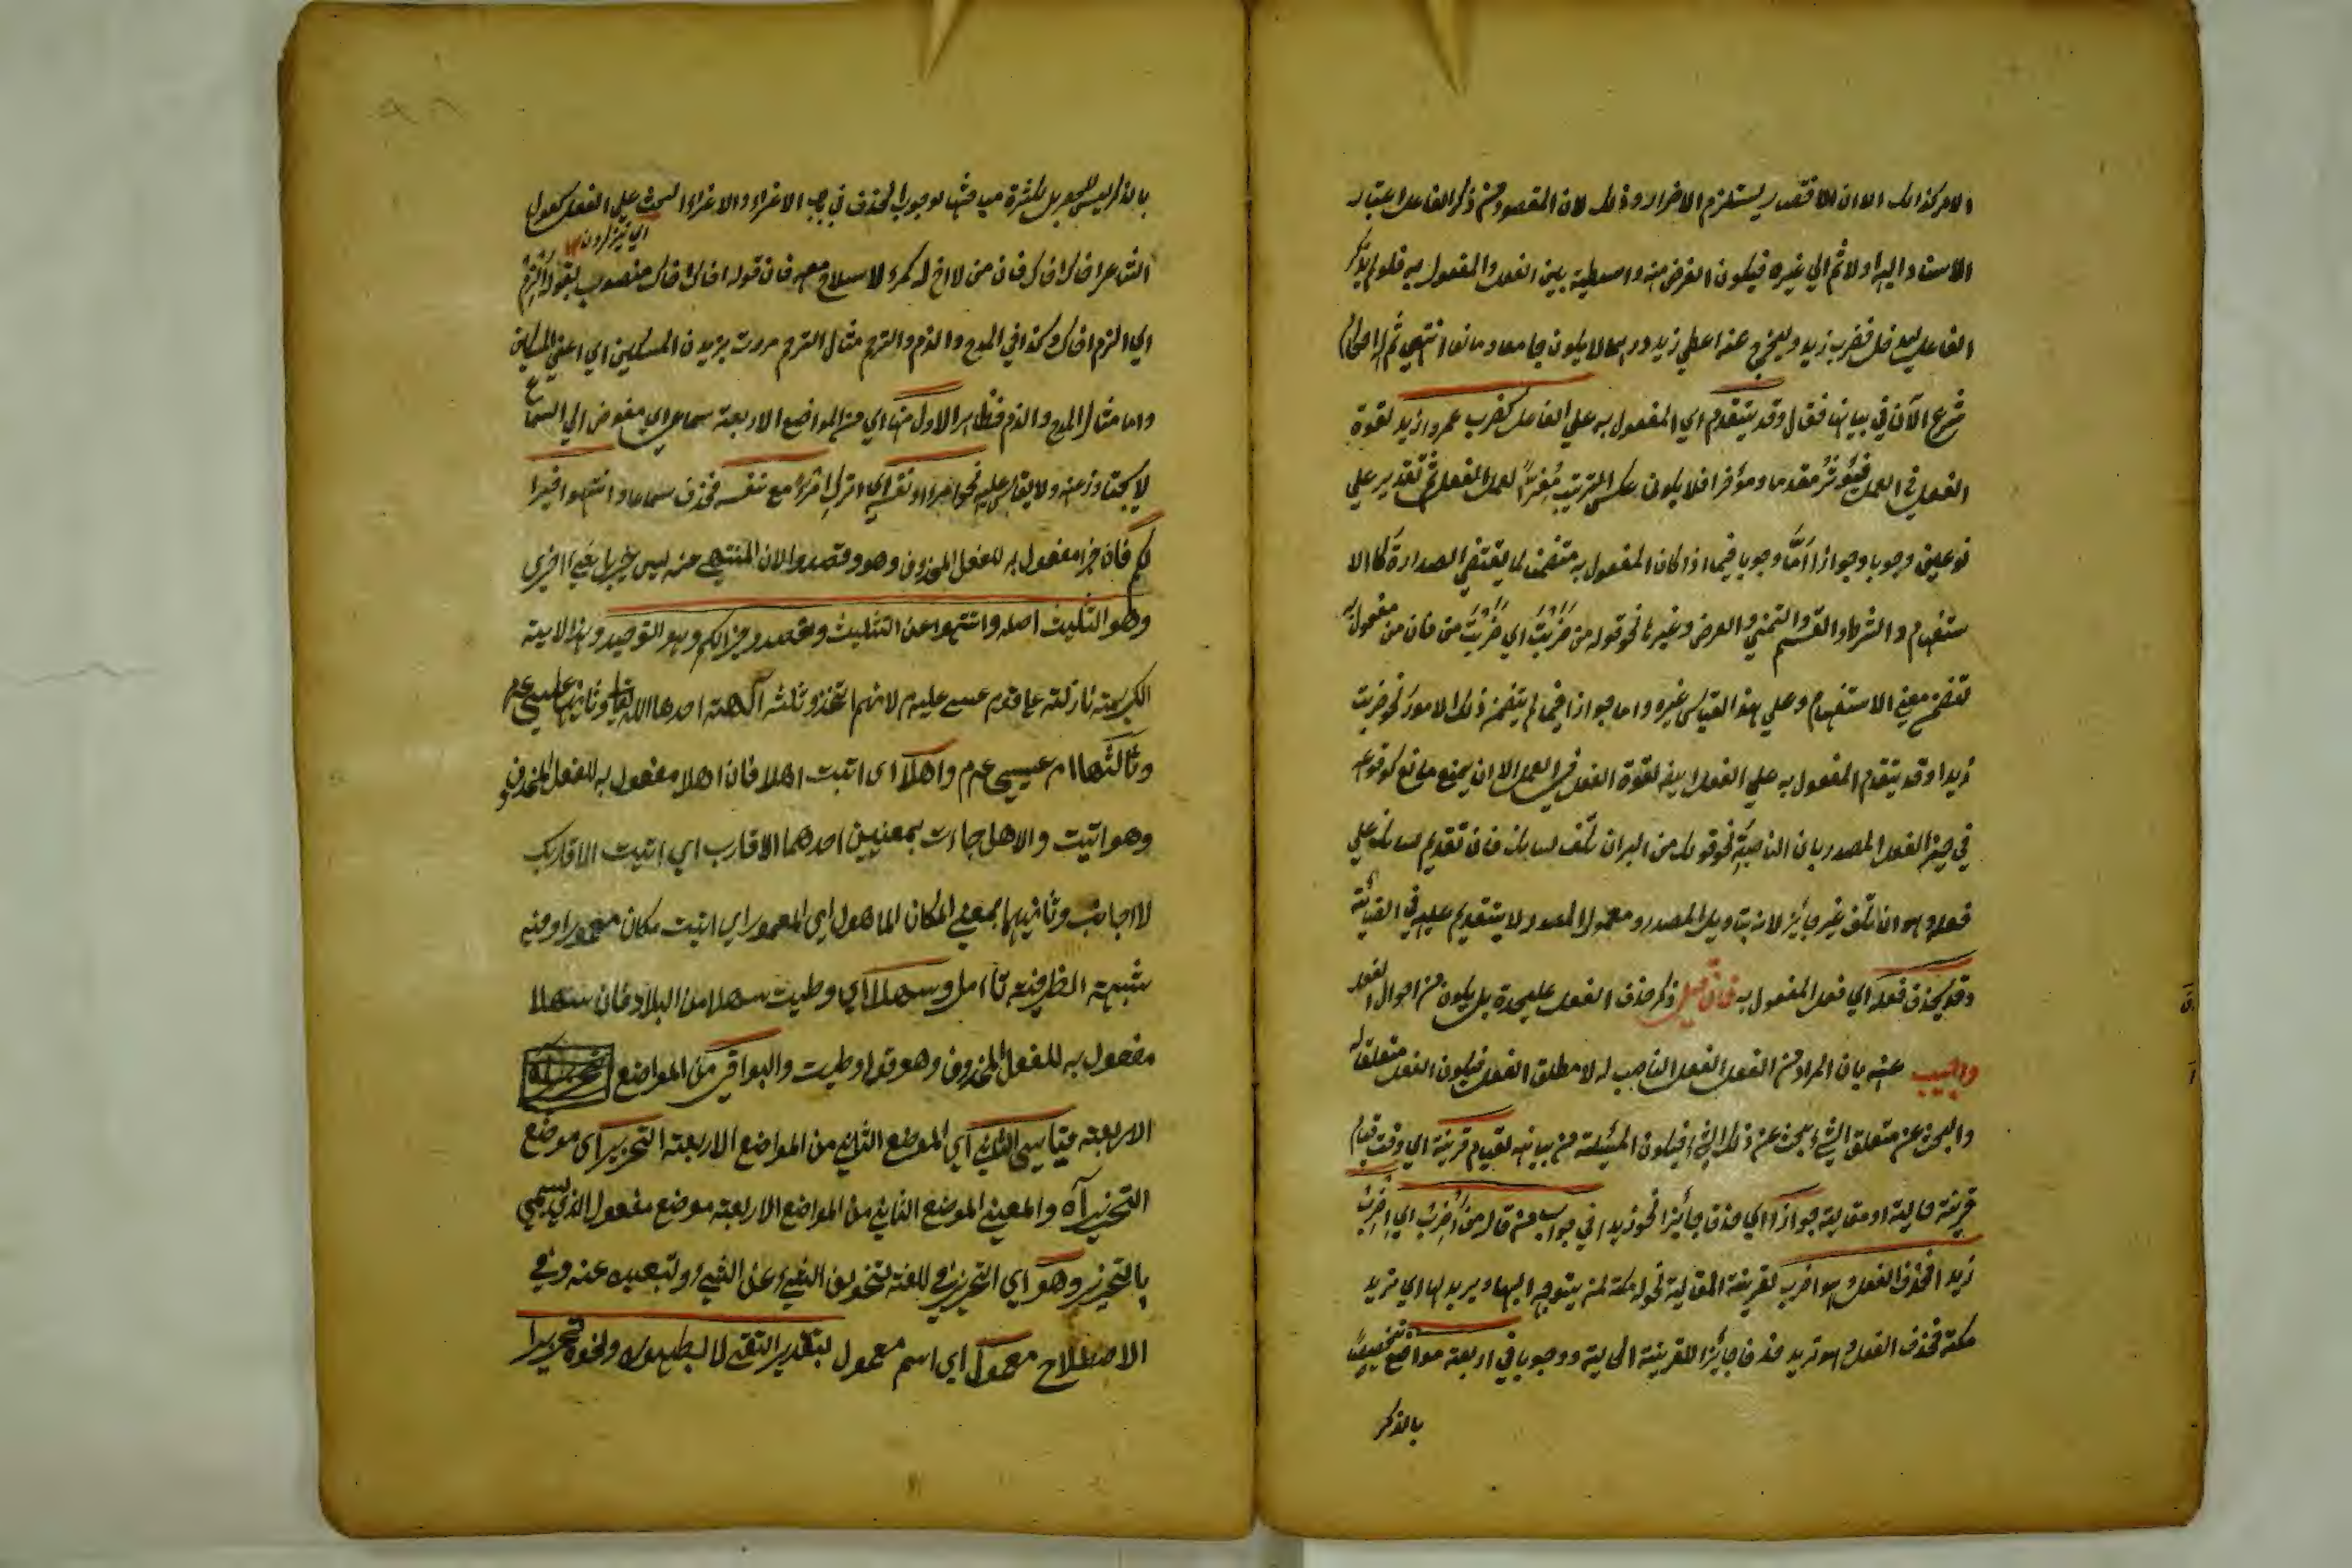 الامر كذالك الا ان الاقتصار يستلزم الاضرار وذلك لان المقصود من ذكر الفاعل اعتبار
الاسناد اليه اولا ثم الي غيره فيكون الغرض منه واسطية بين الفعل والمفعول به فلو لم يذكر
الفاعل ليدخل فضرب زيد ويخرج عنه اعطي زيد درهما لا يكون جامعا ومانعا انتهي ثم
شرع الآن في بيانها فقال وقد يتقدم اي المفعول به علي الفاعل كضرب عمروا زيد لقوة
الفعل في العمل فيؤثر مقدما ومؤخرا فلا يكون عكس الترتيب مغيرا لعمل الفعل ثم تقدير علي
نوعين وجوبا وجوازا امّا وجوبا فيما اذا كان المفعول به متضمنا لما يقتضي الصدارة كالا
ستفهام والشرط والقسم والتمني والعرض وغيرها نحو قوله من ضربتَ اي ضربتَ من فان من مفعول به
تضمن معني الاستفهام وعلي هذا القياس غيره واما جوازا فيما لم يتضمن ذلك الامور نحو ضربت
زيدا وقد يتقدم المفعول به علي الفعل ايضا لقوة الفعل في العمل الا ان يمنع مانع كوقوعه
في حيز الفعل المصدر بان الناصبة نحو قولك من البر ان تكف لسانك فان تقديم لسانك علي
فعله وهو ان تكف غير جائز لانه بتاويل المصدر ومعمول المصدر لا يتقدم عليه في القياس
وقد يحذف فعله اي فعل المفعول به فان قيل ذكر حذف الفعل عليحدة بل يكون من احوال الفعل
واجيب عنه بان المراد من الفعل الفعل الناصب له لا مطلق الفعل فيكون الفعل متعلقا له
والبحث عن متعلق الشئ بحث عن ذلك الشئ فيكون المسئلة من بيانه لقيام قرينة اي وقت قيام
قرينة حالية او مقالية جوازا اي حذف جائزا نحو زيدا في جواب من قال من اضرب اي اضرب
زيدا فحذف الفعل وهو اضرب لقرينة المقالية نحو مكة لمن يتوجه اليها ويريد لها اي تريد
مكة فحذف الفعل وهو تريد حذفا جائزا للقرينة الحالية ووجوبا في اربعة مواضع تخصيص
بالذكر
بالذكر ليس للحصر بل لكثرة مباحثها لوجوب الحذف في باب الاغراء والاغراء البحث علي الفعل كقول
اي تيزكردن
الشاعر اخاك اخاك فان من لا اخ له كمرء لا سلاح معه فان قوله اخاك اخاك منصوب بقوله الزم
اي الزم اخاك وكذا في المدح والذم والترحم مثال الترحم مررت بزيد ن المسكين اي اعني المسكين
واما مثال المدح والذم فظاهر الاول منها اي من المواضع الاربعة سماعي اي مفوض الي السماع
لا يتجاوز عنه ولا يقاس عليه نحو امرء ونفسه اي اترك امرء مع نفسه فحذف سماعا وانتهوا خيرا
لكم فان خيرا مفعول به للفعل المحذوف وهو وقصدوا لان المنتهي عنه ليس خير بل شيئا اخري
وهو التثليث اصله وانتهوا عن التثليث وقصدوا خيرا لكم وهو التوحيد وهذا لاية
الكريمة نازلة علي قوم عيسي عليه م لانهم اتخذو ثلثه آلهة احدها الله تعالي وثانيها عيسي عم
وثالثها ام عيسي عم م واهلا اي اتيت اهلا فان اهلا مفعول به للفعل المحذوف
وهو اتيت والاهل جاءت بمعنيين احدهما الاقارب اي اتيت الاقاربك
لا اجانب وثانيهما بمعني المكان الماهول اي المعمور اي اتيت مكان معمورا وفيه
شبهة الظرفية تأمل وسهلا اي وطيت سهلا من البلاد فان سهلا
مفعول به للفعل المحذوف وهو قوله وطيت والبواقي من المواضع
الاربعة قياسي الثاني اي الموضع الثاني من المواضع الاربعة التحذير اي موضع
التحذير آه والمعني الموضع الثاني من المواضع الاربعة موضع مفعول الذي يسمي
بالتحذير وهو اي التحذير في اللغة تخويف الشئ عن الشئ وتبعيده عنه وفي
الاصطلاح معمول اي اسم معمول بتقدير اتق لا بطعوك ونحوه تحذيرا